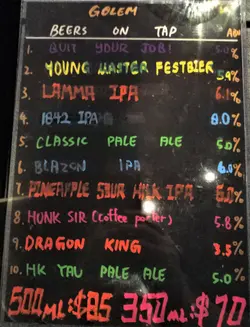 GOLEM
BEERS ON TAP ABV
1. QUIT YOUR JOB! 5.0%
2. YOUNG MASTER FESTBIER 5.9%
3. LAMMA IPA 6.1%
4. 1842 IPA 8.0%
5. CLASSIC PALE ALE 5.0%
6. BLAZON IPA 6.0%
7. PINEAPPLE SOUR MILK IPA 6.0%
8. HUNK SIR (Coffee porter) 5.8%
9. DRAGON KING 3.5%
10. HK YAU PALE ALE 5.0%
500ML:$85 350ML:$70